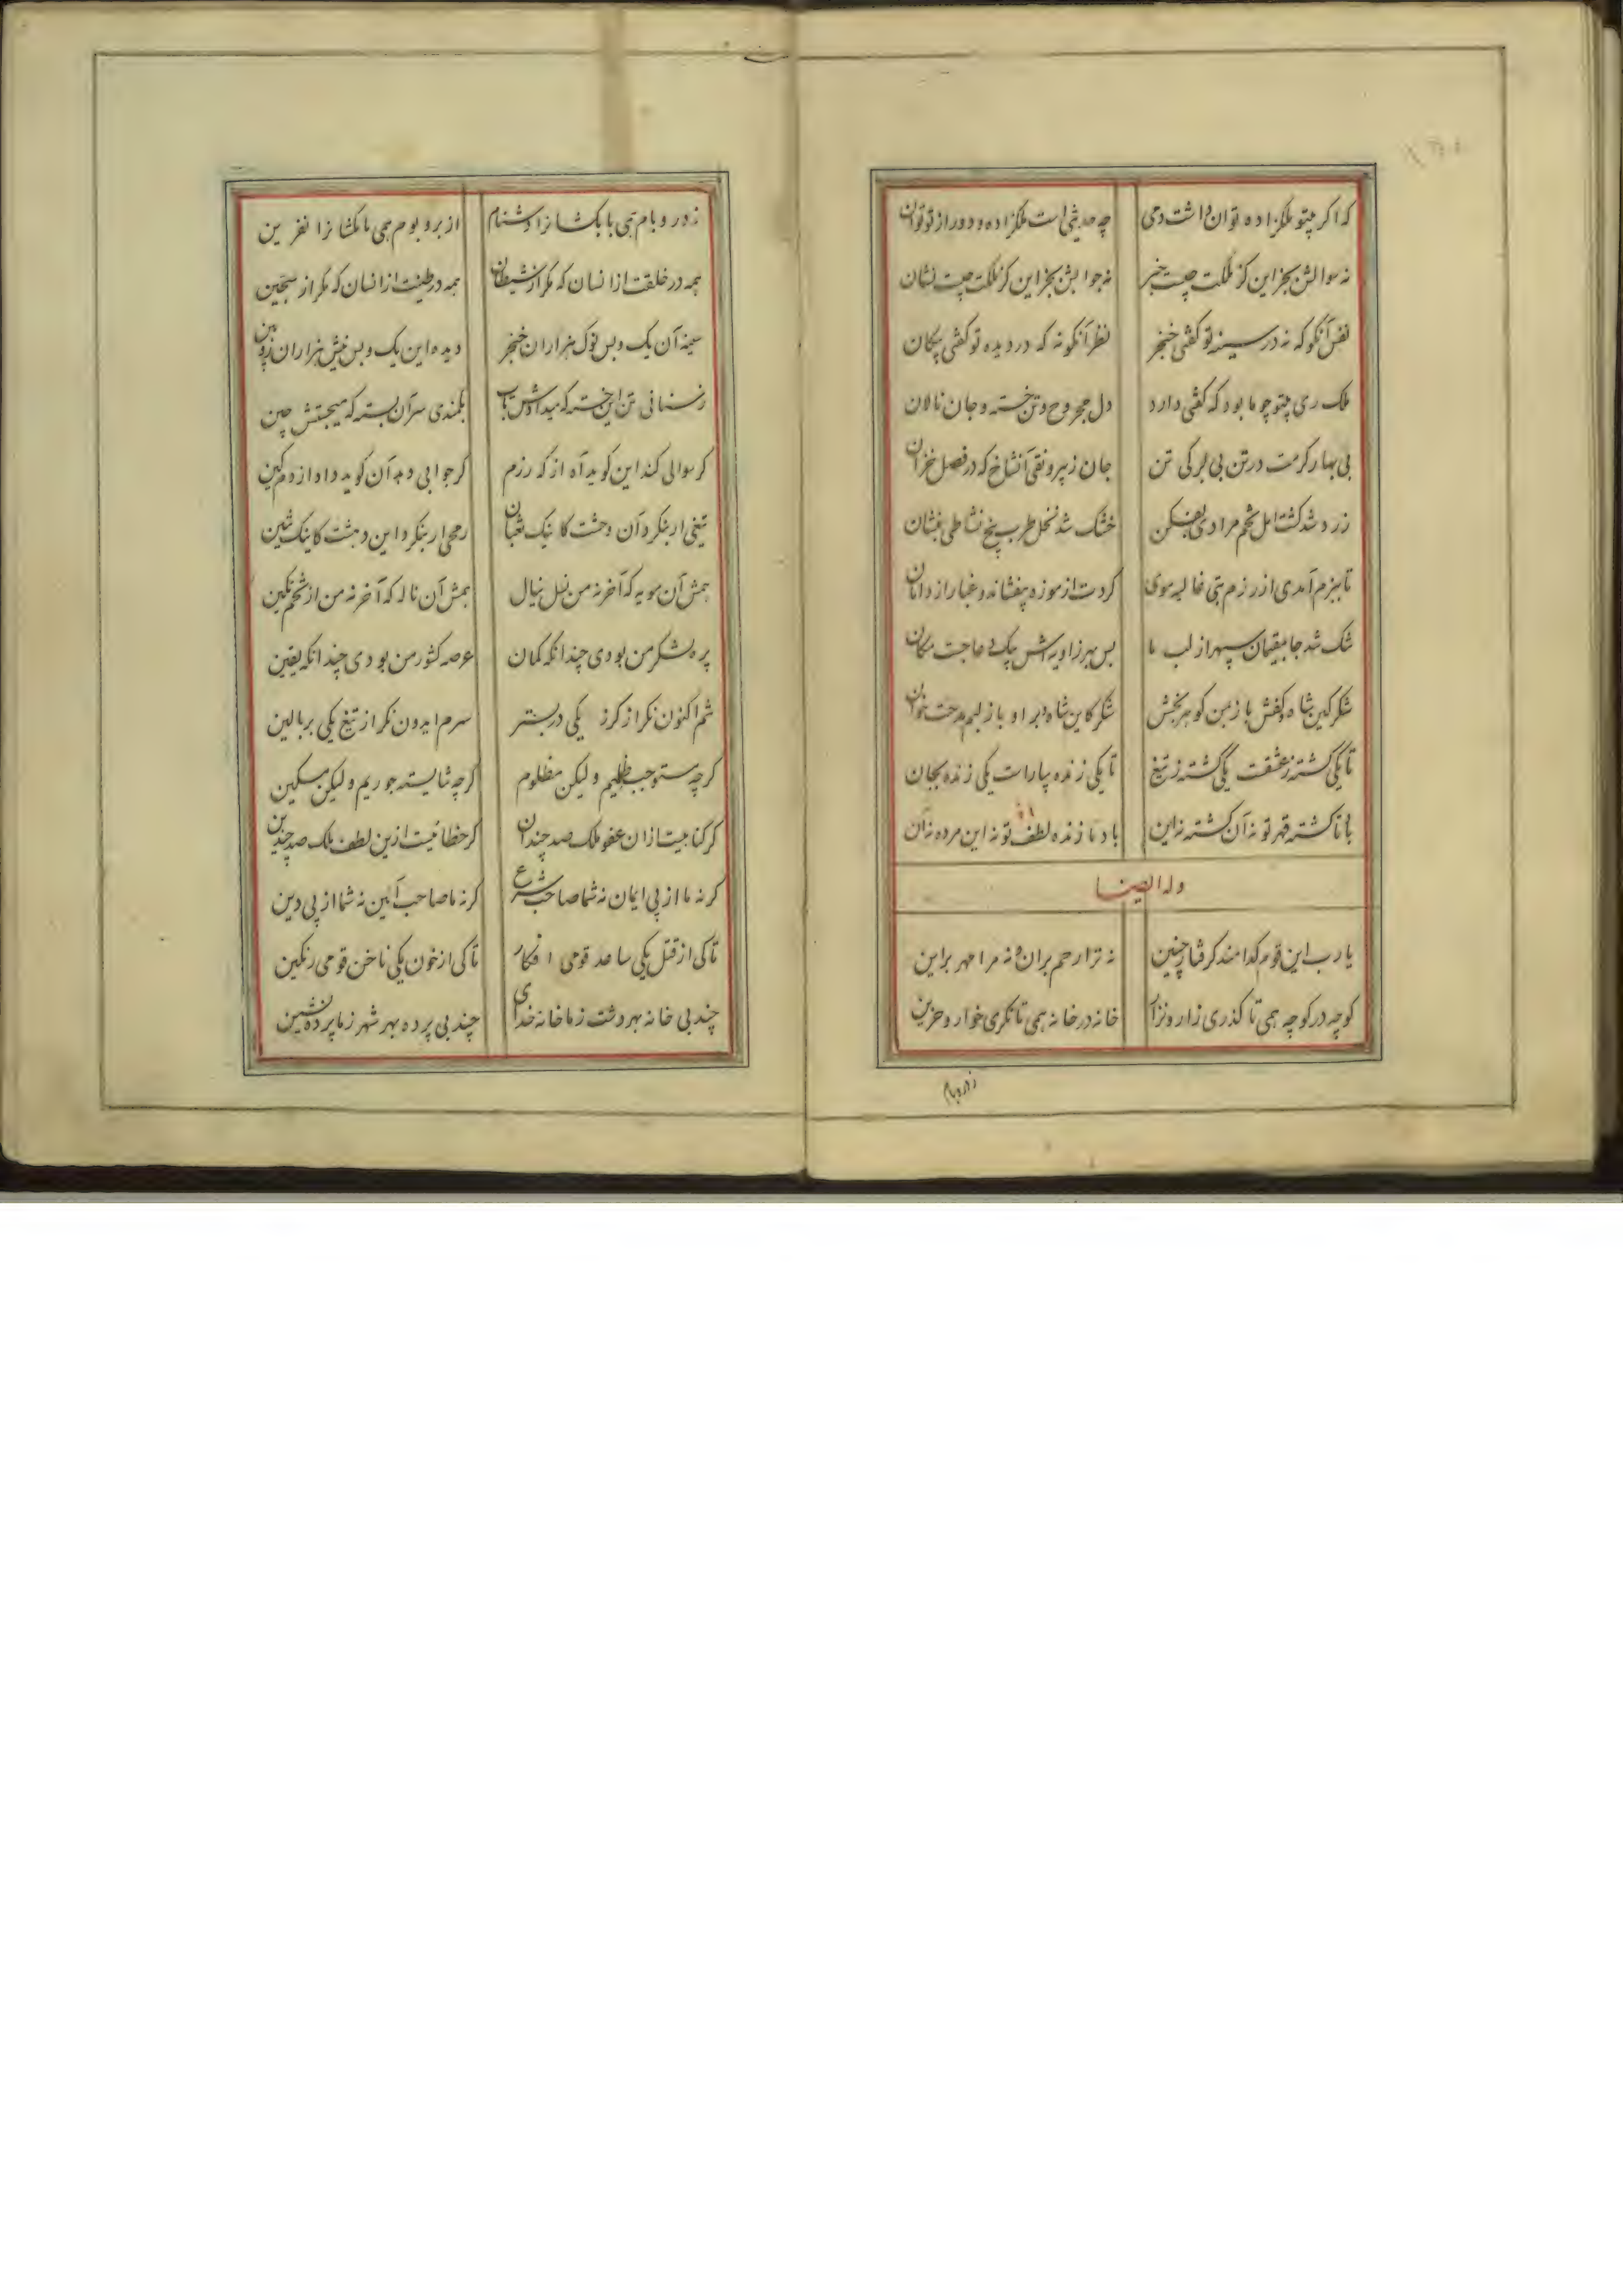 که اگر بیتو ملکزاده توان داشت دمی چه حدیثی است ملکزاده و دور از تو توان
نه سوالش بجز این کز ملکت چیست خبر نه جوابش بجز این کز ملکت چیست نشان
نفس آنگونه که در سینه تو گفتی خنجر نظر آنگونه که در دیده تو گفتی پیکان
ملک ری بیتو چو ما بود که گفتی دارد دل مجروح و تن خسته و جان نالان
بی بهار کرمت در تن بی برگی تن جان ز بیرونقی آنشاخ که در فصل خزان
زرد شد کشت امل تخم مرادی بفکن خشک شد نخل طرب بیخ نشاطی بنشان
تا ببزم آمدی از رزم بتی غالیه موی گردت از موزه بیفشاند و غبار از دامان
شک شد جا بمقیمان سپهر از لب ما بس بهر زاویه اش پیک دعا جست مکان
شکر کین شاه و کفش باز بمن گوهر بخش شکر کاین شاه و بر او باز لبم مدحت خوان
تا یکی کشته ز عشقت یکی کشته ز تیغ تا یکی زنده بیارست یکی زنده بجان
با تا کشته قهر تو نه آن کشته نه این باد تا زنده لطف تو نه این مرده نه آن
وله ایضا
یا رب این قوم کدامند گرفتار چنین نه ترا رحم بر ان و نه مرا مهر بر این
کوچه در کوچه همی تا گذری زار و نزار خانه در خانه همی تا نگری خوار و حزین
ز در و بام
ز در و بام همی با بکشانرا دشنام از بر و بوم همی مامکشانرا نفرین
همه در خلقت از انسان که مگر از شیطان همه در طینت از انسان که مگر از سجین
سینه آن یک و بس نوک هزاران خنجر دیده این یک و بس نیش هزاران زوبین
رسنانی تن این خسته که میدادش تاب بکمندی سر آن بسته که میجستش چین
گر سوالی کند این گوید آه از که رزم گر جوابی دهد آن گوید داد از دم کین
تیغی ار بنگرد آن وحشت کاینک ثعبان رمحی ار بنگرد این دهشت کاینک تنین
همش آن مویه که آخر نه من از نسل ینال همش آن ناله که آخر نه من از تخم تکین
پره لشکر من بودی چندانکه گمان عرصه کشور من بودی چندانکه یقین
تنم اکنون نگر از گرز یکی در بستر سرم ایدون نگر از تیغ یکی بر بالین
گرچه مستوجب ظلمیم و لیکن مظلوم گرچه شایسته جوریم و لیکن مسکین
گر گناهیست ازان عفو ملک صد چندان گر خطائیست ازین لطف ملک صد چندین
گر نه ما از پی ایمان نه شما صاحب شرع گر نه ما صاحب آئین نه شما از پی دین
تا کی از قتل یکی ساعد قومی افکار تا کی از خون یکی ناخن قومی رنگین
چند بی خانه بهر دشت ز ما خانه خدای چند بی پرده بهر شهر ز ما پرده نشین